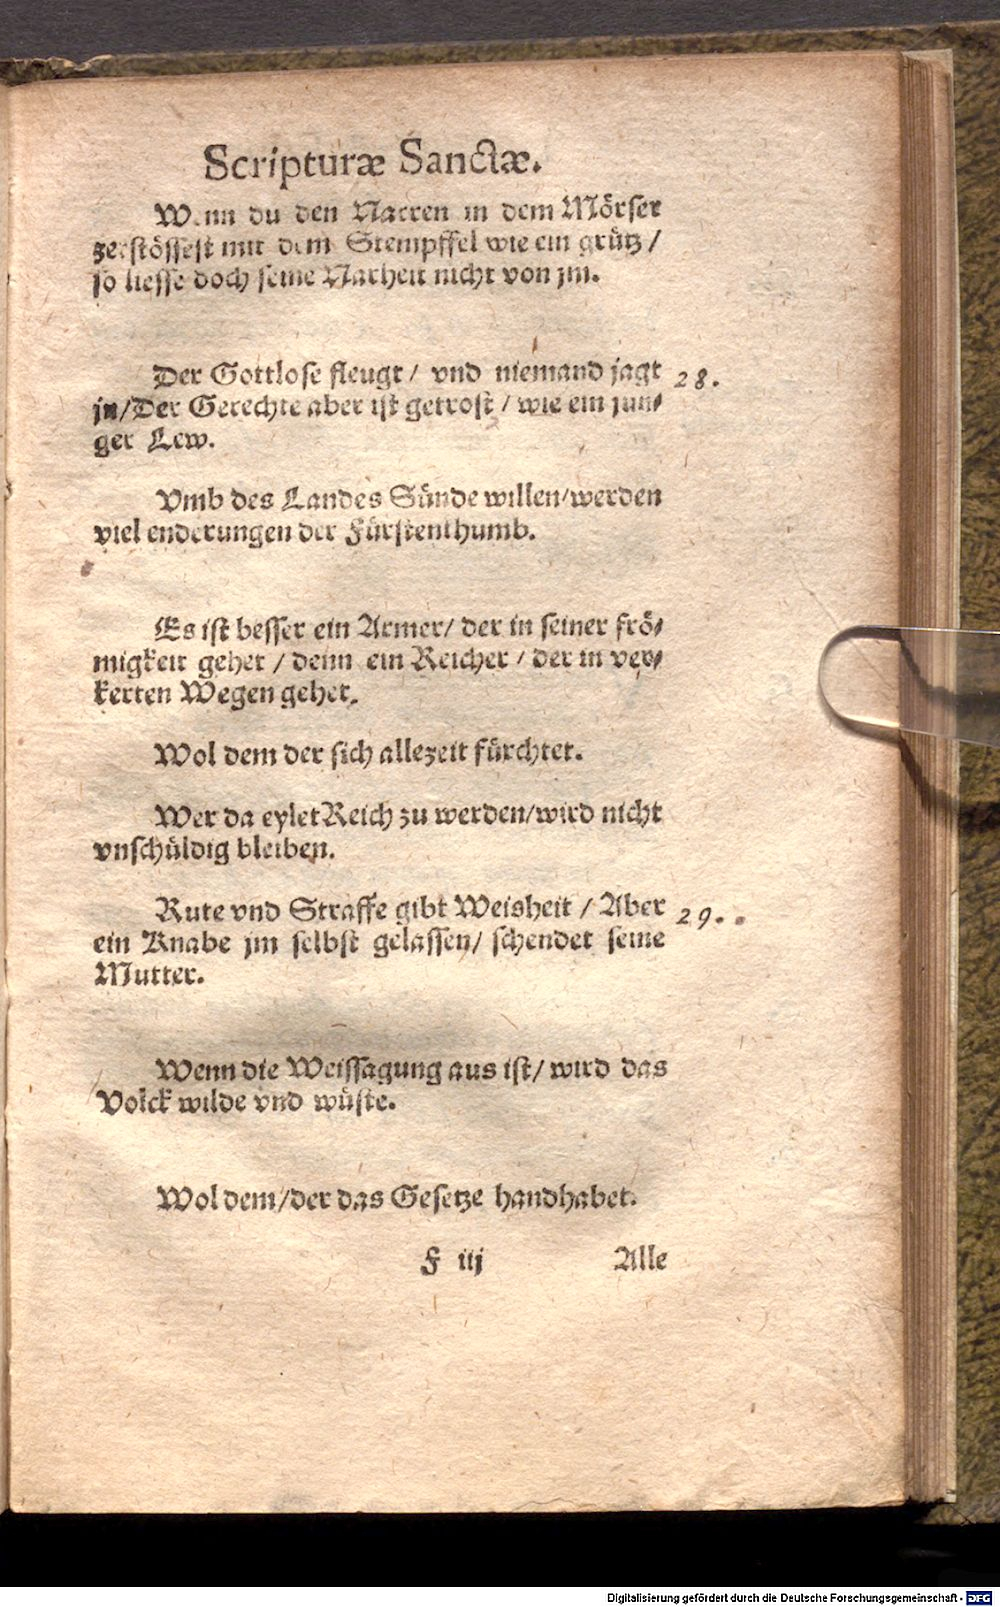 Scripturæ Sanctæ.
Wenn du den Narren in dem Mörser
zerstössest mit dem Stempffel wie ein grütz /
so liesse doch seine Narheit nicht von jm.
Der Gottlose fleugt / vnd niemand jagt
28.
jn/Der Gerechte aber ist getrost / wie ein jun-
ger Lew.
Vmb des Landes Sünde willen/werden
viel enderungen der Fürstenthumb.
Es ist besser ein Armer/ der in seiner frö-
migkeit gehet / denn ein Reicher / der in ver-
kerten Wegen gehet.
Wol dem der sich allezeit fürchtet.
Wer da eylet Reich zu werden/wird nicht
vnschüldig bleiben.
Rute vnd Straffe gibt Weisheit / Aber
29.
ein Knabe jm selbst gelassen/ schendet seine
Mutter.
Wenn die Weissagung aus ist/ wird das
Volck wilde vnd wüste.
Wol dem/der das Gesetze handhabet.
F iij
Alle
Digitalisierung gefördert durch die Deutsche Forschungsgemeinschaft - DFG